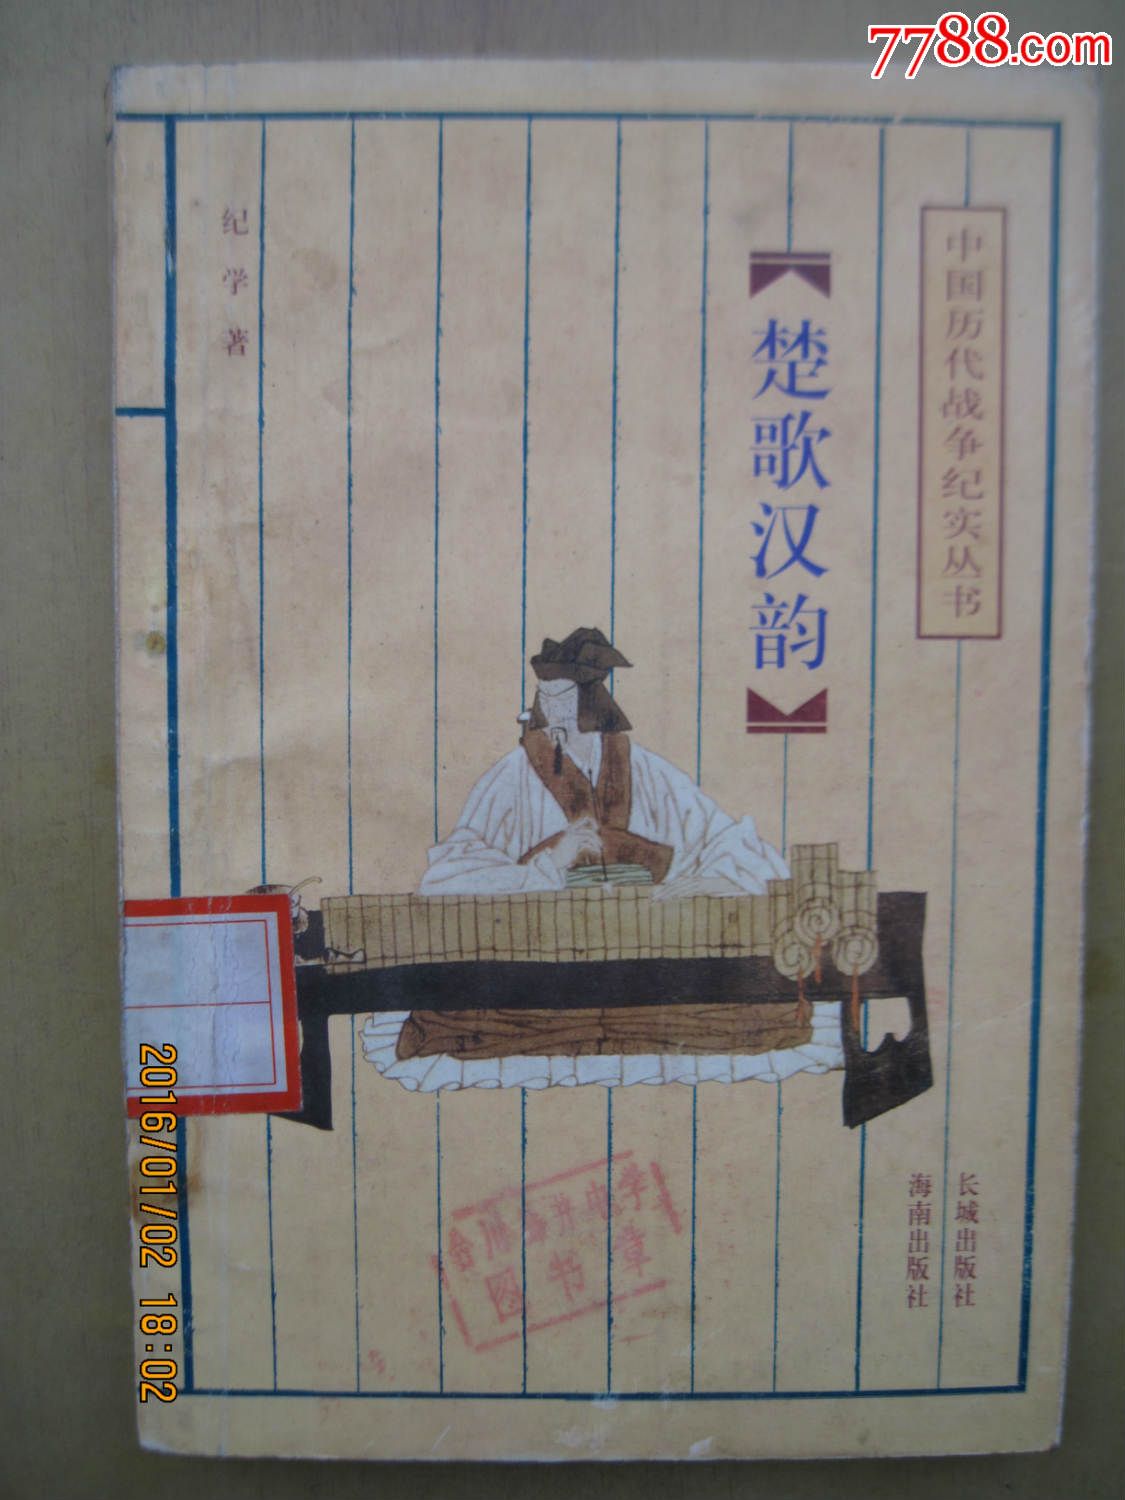 7788.com
中国历代战争纪实丛书
楚歌汉韵
纪学著
长城出版社
海南出版社
图书章
2016/01/02 18:02